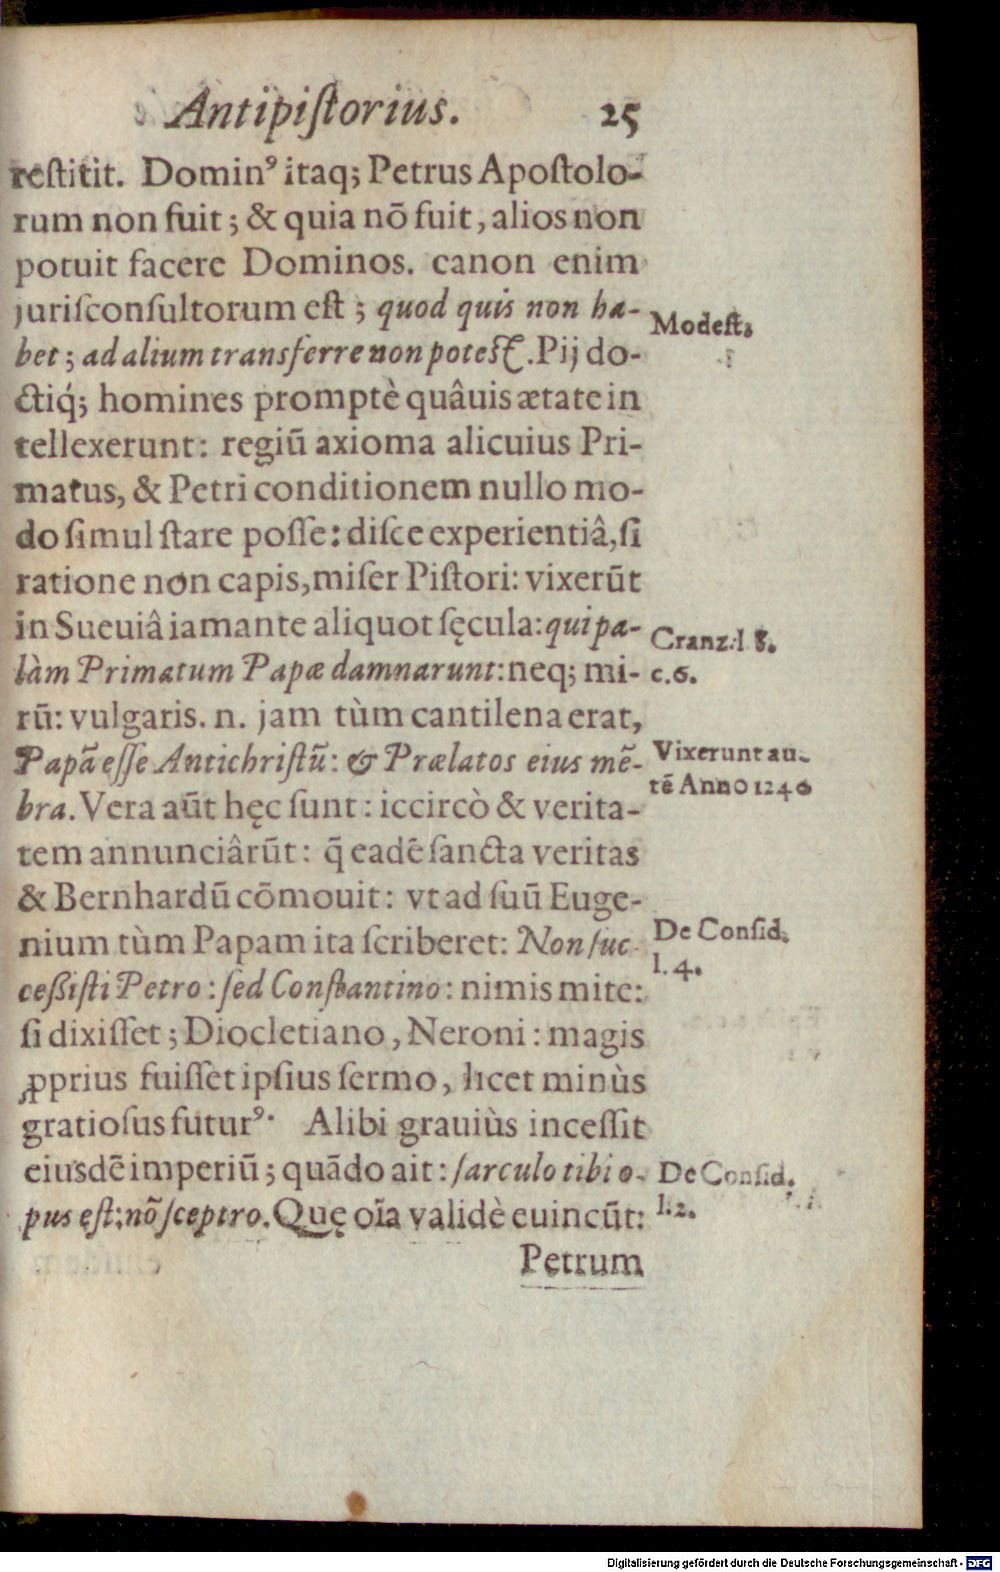 Antipiſtorius. 25
reſtitit. Domin⁹ itaq; Petrus Apoſtolo-
rum non fuit; & quia nō fuit, alios non
potuit facere Dominos. canon enim
juriſconſultorum eſt; quod quis non ha-
bet; ad alium transferre non poteſt. Pij do-
ctiq́; homines promptè quâuis ætate in
tellexerunt: regiū axioma alicuius Pri-
matus, & Petri conditionem nullo mo-
do ſimul ſtare poſſe: diſce experientiâ, ſi
ratione non capis, miſer Piſtori: vixerūt
in Sueuiâ iam ante aliquot ſęcula: qui pa-
làm Primatum Papæ damnarunt: neq; mi-
rū: vulgaris. n. jam tùm cantilena erat,
Papā eſſe Antichriſtū: & Prælatos eius mē-
bra. Vera aūt hęc ſunt: iccircò & verita-
tem annunciârūt: q̄ eadē ſancta veritas
& Bernhardū cōmouit: vt ad ſuū Euge-
nium tùm Papam ita ſcriberet: Non ſuc-
ceßiſti Petro: ſed Conſtantino: nimis mite:
ſi dixiſſet; Diocletiano, Neroni: magis
ꝓprius fuiſſet ipſius ſermo, licet minùs
gratioſus futur⁹. Alibi grauiùs inceſſit
eiusdē imperiū; quādo ait: ſarculo tibi o-
pus eſt; nō ſceptro. Quę oīa validè euincūt:
Petrum
Modeſt.
Cranz. l 8.
c. 6.
Vixerunt au-
tē Anno 1240
De Conſid.
l. 4.
De Conſid.
l. 2.
Digitalisierung gefördert durch die Deutsche Forschungsgemeinschaft - DFG